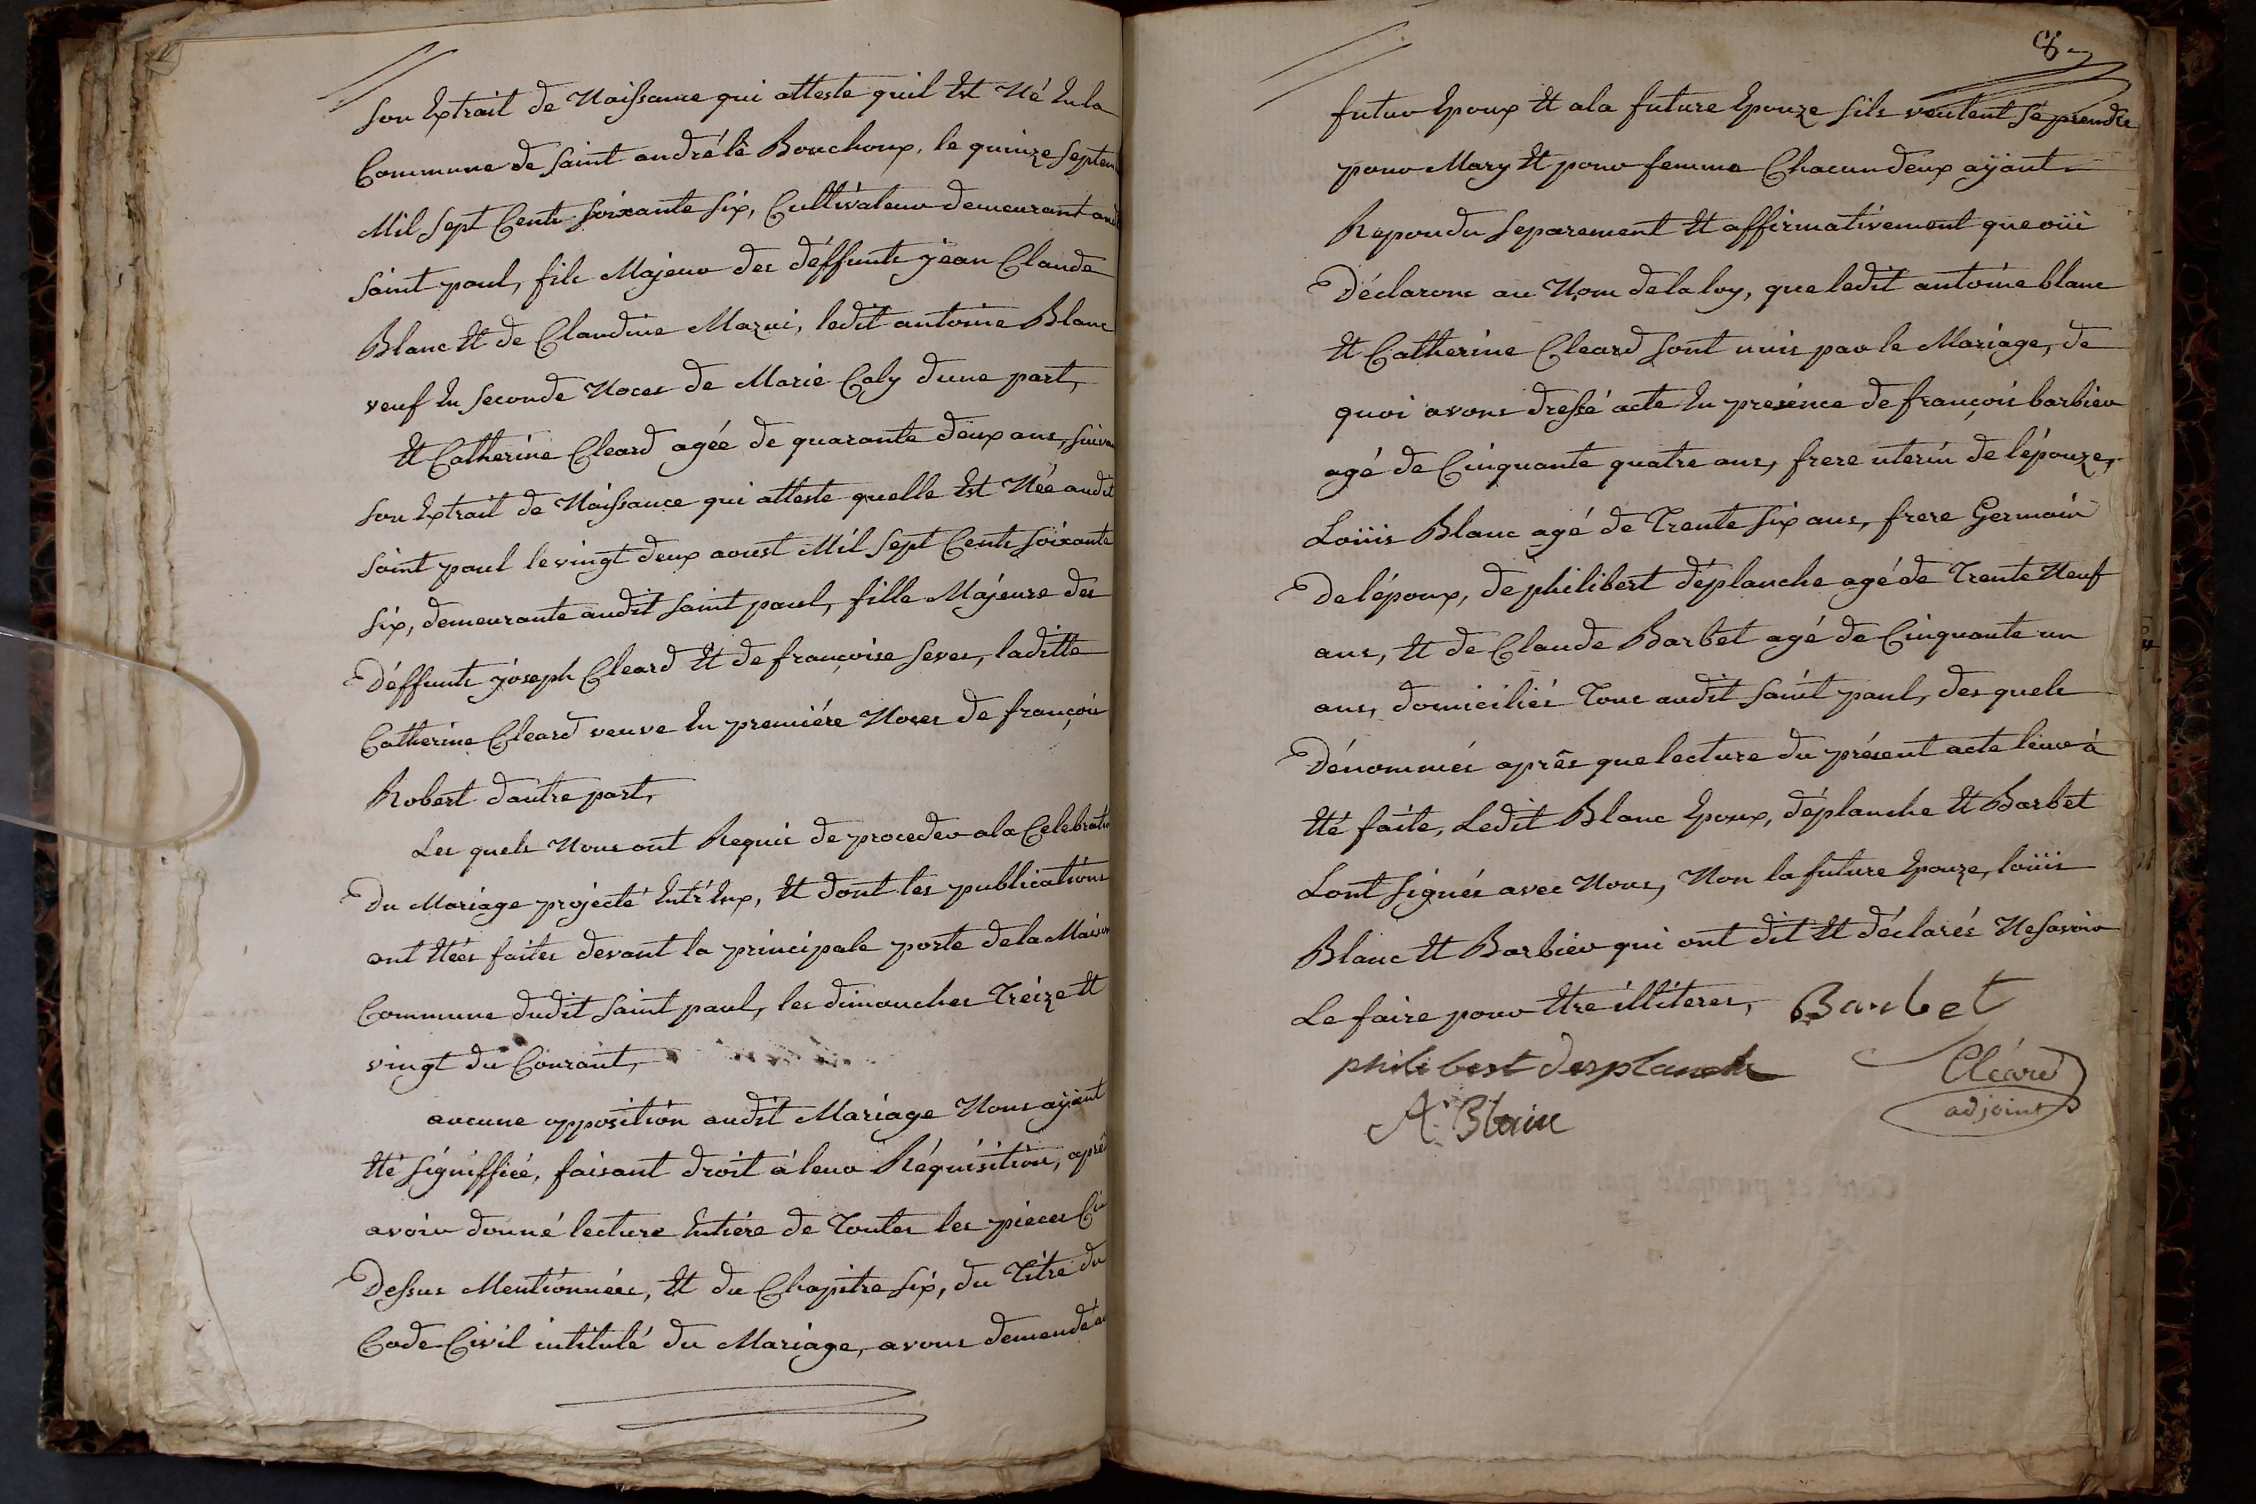 Son Extrait de Naissance qui atteste quil Est Né En la
Commune de Saint andré lè Bouchoux, le quinze septem
Mil Sept Cents Soixante Six, Cultivateur demeurant aud
Saint paul, fils Majeur des déffunts jean Claude
Blanc Et de Claudine Mazui, ledit antoine Blanc
veuf En Seconde Noces de Marie Caly dune part,
Et Catherine Cleard agée de quarante deux ans, suivan
Son Extrait de Naissance qui atteste quelle Est Née audit
Saint paul le vingt deux aoust Mil Sept Cents Soixante
Six, demeurante audit Saint paul, fille Majeure des
Déffunts joseph Cleard Et de françoise Seves, laditte
Catherine Cleard veuve En premiére Noces de françois
Robert dautre part,
Les quels Nous ont Requis de proceder a la Celebratio
Du Mariage projecté Entr'Eux, Et dont les publications
ont Etées faites devant la principale porte de la Maison
Commune dudit Saint paul, les dimanches Treize Et
vingt du Courant,
aucune opposition audit Mariage Nous ayant
Eté Signiffiée, faisant droit à leur Réquisition, aprés
avoir donné lecture Entiére de Toutes les pieces Ci
Dessus Mentionnées, Et du Chapitre Six, du Titre du
Code Civil intitulé du Mariage, avons demandé au
8
futur Epoux Et a la future Epouze Sils veulent Se prendre
pour Mary Et pour femme Chacun deux ayant
Repondu Separement Et affirmativement que oüi
Déclarons au Nom de la loy, que ledit antoine blanc
Et Catherine Cleard Sont unis par le Mariage, de
quoi avons dressé acte En presence de françois barbier
agé de Cinquante quatre ans, frere uterin de l'épouze,
Loüis Blanc agé de Trente Six ans, frere Germain
De l'époux, de philibert déplanche agé de Trente Neuf
ans, Et de Claude Barbet agé de Cinquante un
ans, domiciliés Tous audit Saint paul, des quels
Dénommés après que lecture du présent acte leur à
Eté faite, Ledit Blanc Epoux, déplanche Et Barbet
Lont Signés avec Nous, Non la future Epouze, loüis
Blanc Et Barbier qui ont dit Et déclarés Ne Savoir
Le faire pour Etre illiteres, Barbet
philibert desplanch
Cléard
adjoint
A. Blanc